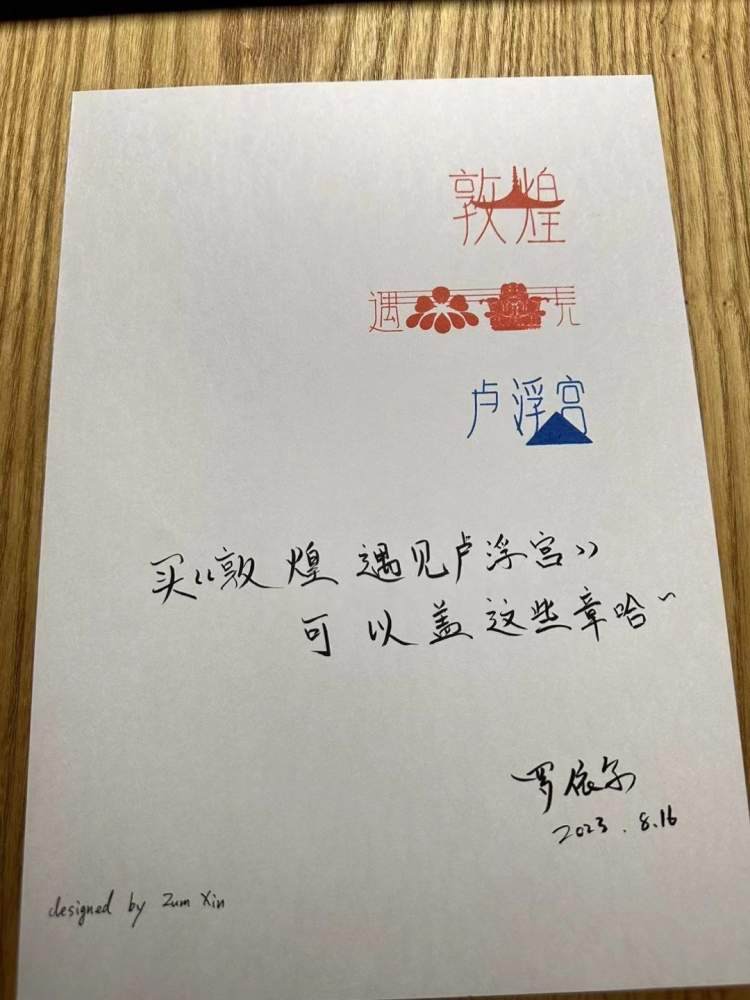 敦煌
遇见
卢浮宫
买《敦煌 遇见卢浮宫》
可以盖这些章哈~
罗依尔
2023.8.16
designed by Zum Xin